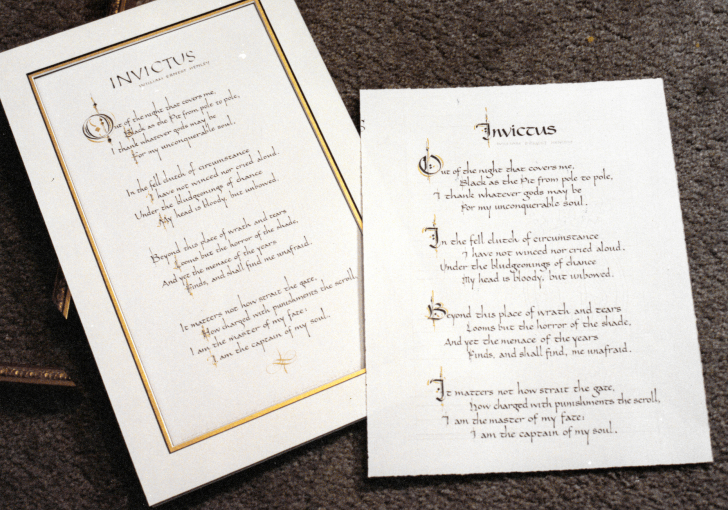 INVICTUS
WILLIAM ERNEST HENLEY
Out of the night that covers me,
Black as the Pit from pole to pole,
I thank whatever gods may be
For my unconquerable soul.
In the fell clutch of circumstance
I have not winced nor cried aloud.
Under the bludgeonings of chance
My head is bloody, but unbowed.
Beyond this place of wrath and tears
Looms but the horror of the shade,
And yet the menace of the years
Finds, and shall find me unafraid.
It matters not how strait the gate,
How charged with punishments the scroll,
I am the master of my fate:
I am the captain of my soul.
Invictus
WILLIAM ERNEST HENLEY
Out of the night that covers me,
Black as the Pit from pole to pole,
I thank whatever gods may be
For my unconquerable soul.
In the fell clutch of circumstance
I have not winced nor cried aloud.
Under the bludgeonings of chance
My head is bloody, but unbowed.
Beyond this place of wrath and tears
Looms but the horror of the shade,
And yet the menace of the years
Finds, and shall find, me unafraid.
It matters not how strait the gate,
How charged with punishments the scroll,
I am the master of my fate:
I am the captain of my soul.